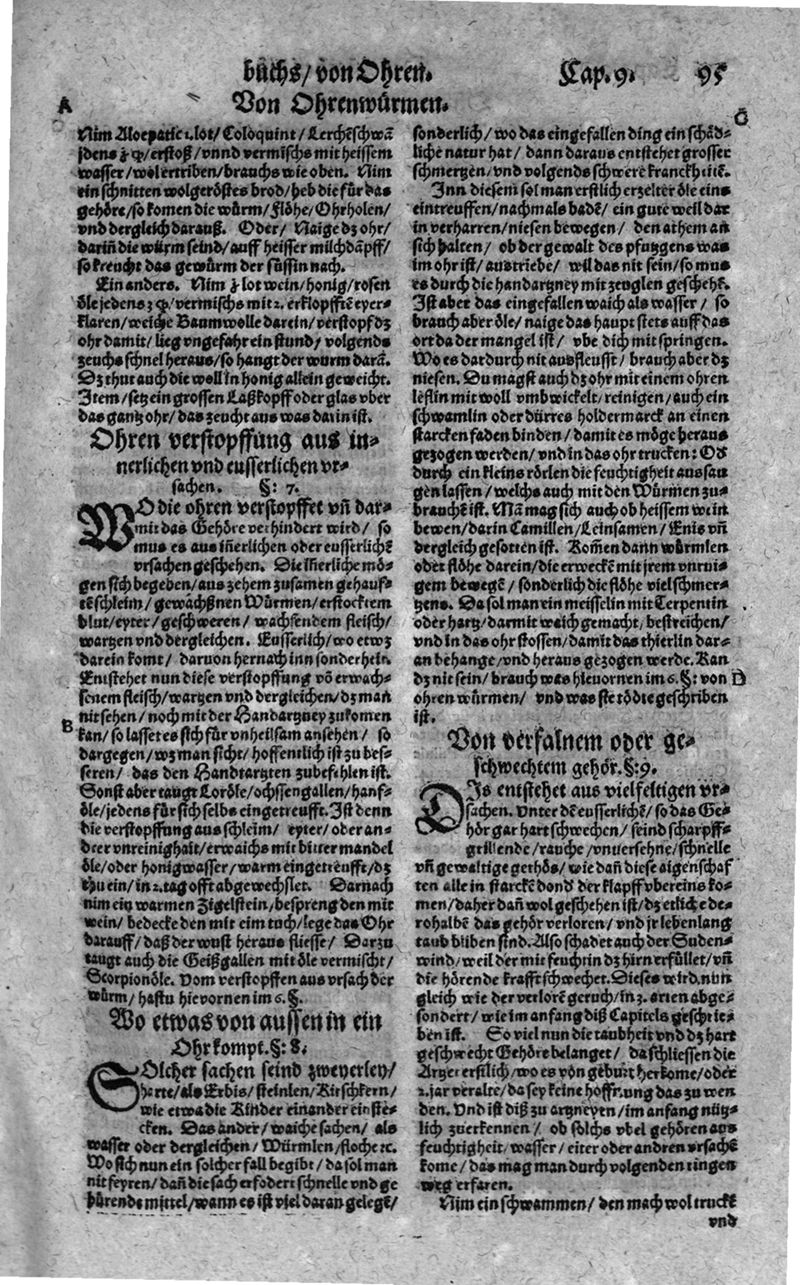 büchs/ von Ohren. Cap. 9. 95
Von Ohrenwürmen.
A
Nim Aloepatic 1. lot/ Coloquint/ Lerchēschwā
jdens ʒ φ/ erstoß/ vnnd vermischs mit heissem
wasser/ wol ertriben/ brauchs wie oben. Nim
ein schnitten wolgeröstes brod/ heb die für das
gehöre/ so komen die würm/ Flöhe/ Ohrholen/
vnd dergleich darauß. Oder/ Naige dz ohr/
dariñ die würm seind/ auff heisser milchdāpff/
so kreucht das gewürm der süssin nach.
Ein anders. Nim ʒ lot wein/ honig/ rosen
öle jedens ʒ φ/ vermischs mit 2. erklopfftē eyer-
klaren/ weiche Baumwolle darein/ verstopf dz
ohr damit/ lieg vngefahr ein stund/ volgends
zeuchs schnel heraus/ so hangt der wurm darā.
Dz thut auch die woll in honig allein geweicht.
Item/ setz ein grossen Laßkopff oder glas vber
das gantz ohr/ das zeucht aus was darin ist.
Ohren verstopffung aus in-
nerlichen vnd eusserlichen vr-
sachen. §: 7.
WO die ohren verstopffet vñ dar-
mit das Gehöre verhindert wird/ so
mus es aus iñerlichen oder eusserlichē
vrsachen geschehen. Die iñerliche mö-
gen sich begeben/ aus zehem zusamen gehauf-
tē schleim/ gewachßnen Würmen/ erstocktem
blut/ eyter/ geschweren/ wachsendem fleisch/
wartzen vnd dergleichen. Eusserlich/ wo etwz
darein komt/ daruon hernach inn sonderheit.
Entstehet nun diese verstopffung vō erwach-
senem fleisch/ wartzen vnd dergleichen/ dz man
nit sehen/ noch mit der Handartzney zukomen
B
kan/ so lasset es sich für vnheilsam ansehen/ so
dargegen/ wz man sicht/ hoffentlich ist zu bes-
seren/ das den Handtartzten zubefehlen ist.
Sonst aber taugt Loröle/ ochssengallen/ hanf-
öle/ jedens für sich selbs eingetreufft. Ist denn
die verstopffung aus schleim/ eyter/ oder an-
derer vnreinighait/ erwaichs mit bitter mandel
öle/ oder honigwasser/ warm eingetreufft/ dz
thu ein/ in 2. tag offt abgewechslet. Darnach
nim ein warmen Zigelstein/ bespreng den mit
wein/ bedecke den mit eim tuch/ lege das Ohr
darauff/ daß der wust heraus fliesse/ Darzu
taugt auch die Geißgallen mit öle vermischt/
Scorpionöle. Vom verstopffen aus vrsach der
würm/ hastu hievornen im 6. §.
Wo etwas von aussen in ein
Ohr kompt. §: 8.
SOlcher sachen seind zweyerley/
harte/ als Erbis/ steinlen/ Kirschkern/
wie etwa die Kinder einander einste-
cken. Das ander/ waiche sachen/ als
wasser oder dergleichen/ Würmlen/ floche ꝛc.
Wo sich nun ein solcher fall begibt/ da sol man
nit feyren/ dañ die sach erfodert schnelle vnd ge
bürende mittel/ wann es ist viel daran gelegē/
C
sonderlich/ wo das eingefallen ding ein schād-
liche natur hat/ dann daraus entstehet grosser
schmerzen/ vnd volgends schwere kranckheitē.
Inn diesem sol man erstlich erzelter öle eins
eintreuffen/ nachmals badē/ ein gute weil dar
in verharren/ niesen bewegen/ den athem an
sich halten/ ob der gewalt des pfutzgens was
im ohr ist/ austriebe/ wil das nit sein/ so mus
es durch die handartzney mit zeuglen geschehē.
Ist aber das eingefallen waich als wasser/ so
brauch aber öle/ naige das haupt stets auff das
ort da der mangel ist/ vbe dich mit springen.
Wo es dardurch nit ausfleusst/ brauch aber dz
niesen. Du magst auch dz ohr mit einem ohren
leflin mit woll vmbwickelt/ reinigen/ auch ein
schwamlin oder dürres holdermarck an einen
starcken faden binden/ damit es möge heraus
gezogen werden/ vnd in das ohr trucken: Od
durch ein kleins rörlen die feuchtigheit aussau
gen lassen/ welchs auch mit den Würmen zu-
brauchē ist. Mā mag sich auch ob heissem wein
bewen/ darin Camillen/ Leinsamen/ Enis vñ
dergleich gesotten ist. Komēn dann würmlen
oder flöhe darein/ die erweckē mit jrem vnrui-
gem bewegē/ sonderlich die flöhe viel schmer-
tzens. Da sol man ein meisselin mit Terpentin
oder hartz/ darmit weich gemacht/ bestreichen/
vnd in das ohr stossen/ damit das thierlin dar-
an behange/ vnd heraus gezogen werde. Kan
dz nit sein/ brauch was hievornen im 6. §: von
D
ohren würmen/ vnd was sie tödte geschriben
ist.
Von verfalnem oder ge-
schwechtem gehör. §: 9.
DIs entstehet aus vielfeltigen vr-
sachen. Vnter dē eusserlichē/ so das Ge-
hör gar hart schwechen/ seind scharpff-
grillende/ rauche/ vnuersehne/ schnelle
vñ gewaltige gethös/ wie dañ diese aigenschaf
ten alle in starckē dond der klapff vbereins ko-
men/ daher dañ wol geschehen ist/ dz etliche de-
rohalbē das gehör verloren/ vnd jr lebenlang
taub bliben sind. Also schadet auch der Suden-
wind/ weil der mit feucht in dz hirn erfüllet/ vñ
die hörende krafft schwechet. Dieses wird nun
gleich wie der verlorē geruch/ in 3. arten abge-
sondert/ wie im anfang diß Capitels geschrie-
ben ist. So viel nun die taubheit vnd dz hart
geschwecht Gehöre belanget/ da schliessen die
Artzet erstlich/ wo es von geburt herkome/ oder
2. jar veralte/ da sey keine hoffnung das zu wen
den. Vnd ist diß zu artzneyen/ im anfang nütz-
lich zuerkennen/ ob solchs vbel gehören aus
feuchtigheit/ wasser/ eiter oder andren vrsachē
kome/ das mag man durch volgenden ringen
weg erfaren.
Nim ein schwammen/ den mach wol truckē
vnd